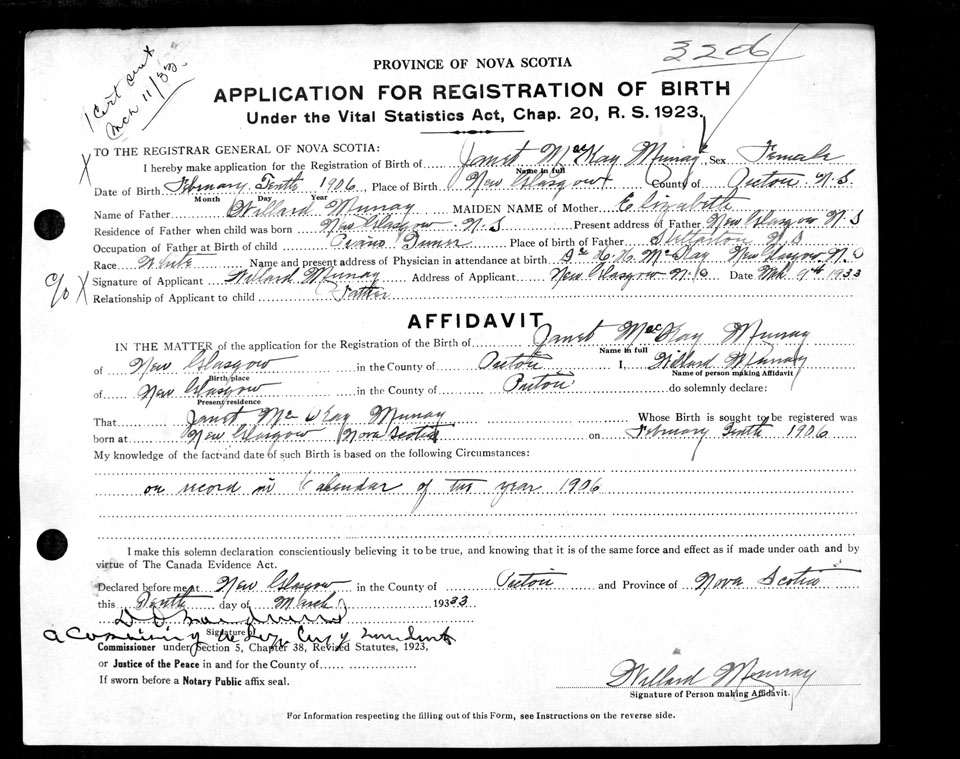 3206
1 Cert sent
Mch 11/33.
PROVINCE OF NOVA SCOTIA
APPLICATION FOR REGISTRATION OF BIRTH
Under the Vital Statistics Act, Chap. 20, R. S. 1923.
X TO THE REGISTRAR GENERAL OF NOVA SCOTIA:
I hereby make application for the Registration of Birth of Janet MacKay Murray Sex Female
Name in full
Date of Birth February Tenth 1906, Place of Birth New Glasgow County of Pictou N.S
Month Day Year
Name of Father Willard Murray MAIDEN NAME of Mother Elizabeth
Residence of Father when child was born New Glasgow N.S Present address of Father New Glasgow N.S
Occupation of Father at Birth of child Piano Tuner Place of birth of Father Stellarton N S
Race White Name and present address of Physician in attendance at birth Dr McKay New Glasgow N.S
c/o X Signature of Applicant Willard Murray Address of Applicant New Glasgow N.S Date Mch 9th 1933
Relationship of Applicant to child Father
AFFIDAVIT
IN THE MATTER of the application for the Registration of the Birth of Janet MacKay Murray
Name in full
of New Glasgow in the County of Pictou I, Willard Murray
Birth place Name of person making Affidavit
of New Glasgow in the County of Pictou do solemnly declare:
Present residence
That Janet McKay Murray Whose Birth is sought to be registered was
born at New Glasgow Nova Scotia on February Tenth 1906
My knowledge of the fact and date of such Birth is based on the following Circumstances:
on record in Calendar of the year 1906
I make this solemn declaration conscientiously believing it to be true, and knowing that it is of the same force and effect as if made under oath and by
virtue of The Canada Evidence Act.
Declared before me at New Glasgow in the County of Pictou and Province of Nova Scotia
this Tenth day of March 1933
Signature of
Commissioner under Section 5, Chapter 38, Revised Statutes, 1923,
or Justice of the Peace in and for the County of
If sworn before a Notary Public affix seal.
Willard Murray
Signature of Person making Affidavit.
For Information respecting the filling out of this Form, see Instructions on the reverse side.